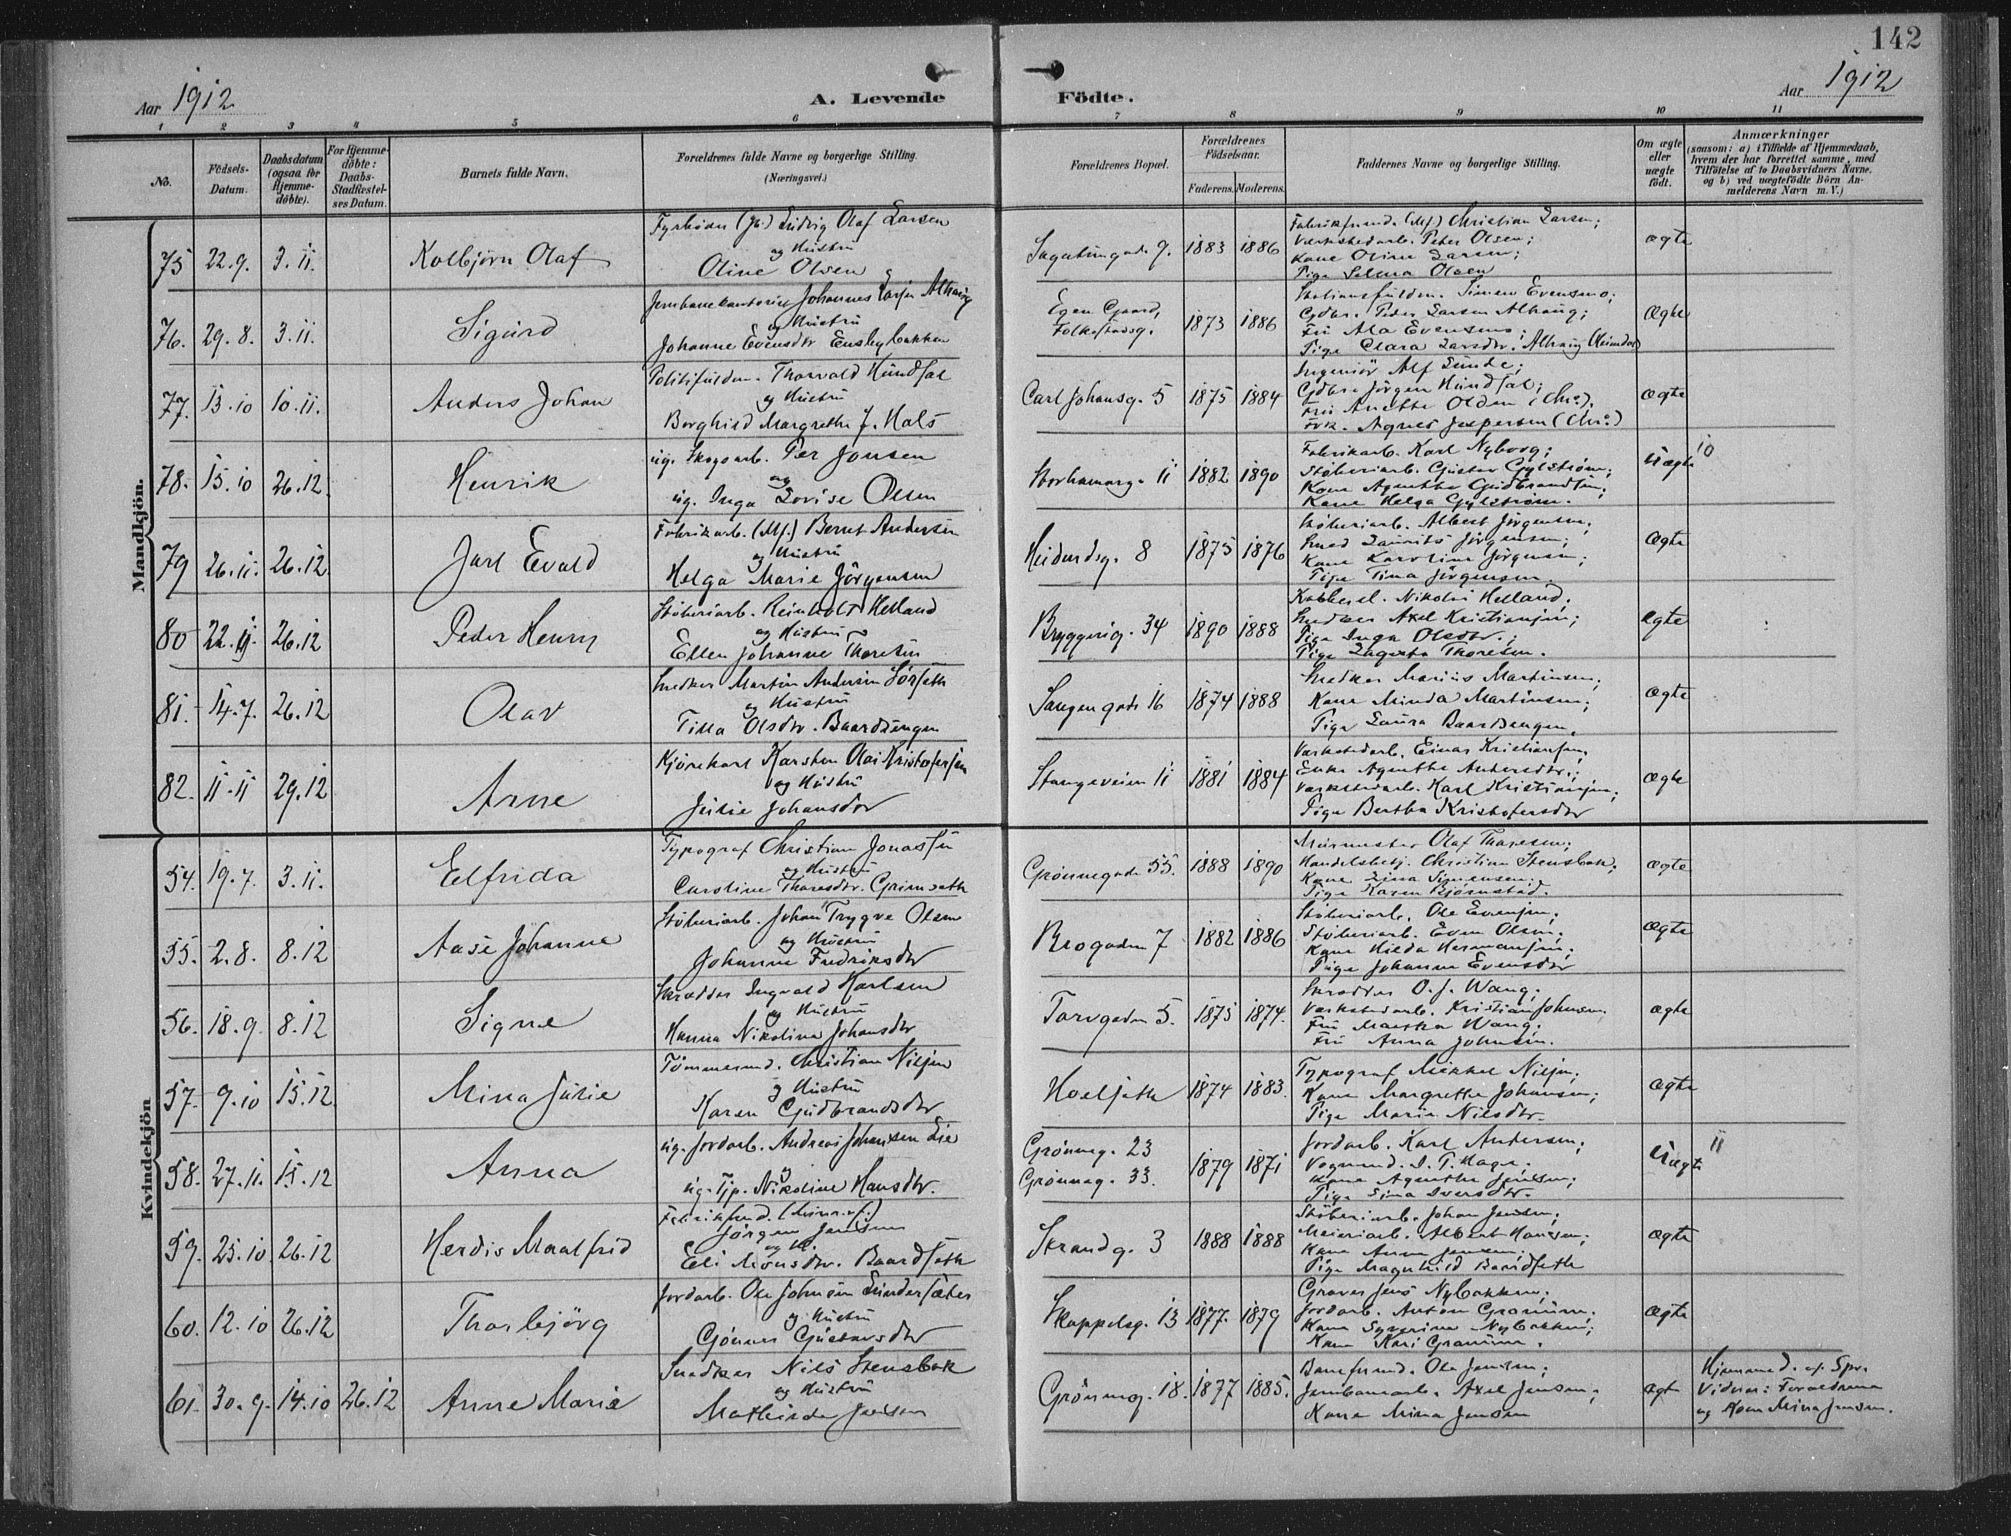 142
Aar 1912
A. Levende
Födte.
Aar 1912
1 2 3 4 5 6 7 8 9 10 11
No.
Födsels-
Datum.
Daabsdatum
(ogsaa for
Hjemme-
döbte).
For Hjemme-
döbte:
Daabs-
Stadfæstel-
ses Datum.
Barnets fulde Navn.
Forældrenes fulde Navne og borgerlige Stilling.
(Næringsvei.)
Forældrenes Bopæl.
Forældrenes
Födselsaar.
Faderens. Moderens.
Faddernes Navne og borgerlige Stilling.
Om ægte
eller
uægte
födt.
Anmærkninger
(saasom: a) i Tilfælde af Hjemmedaab,
hvem der har forrettet samme, med
Tilföielse af to Daabsvidners Navne.
og b) ved uægtefödte Börn An-
melderens Navn m. V.)
Mandkjön.
75 22.9. 3.11. Kolbjørn Olaf
Ludvig Olaf Larsen
og Hustru
Oline Olsen
9. 1883 1886
Christian Larsen;
Værkstedarb. Peter Olsen;
Kone Oline Larsen;
Pige Selma Olsen
ægte
76. 29.8. 3.11. Sigurd
Johannes Larsen Alhaug
og Hustru
Johanne Evensdtr Ensbybakken
Egen Gaard,
Folkestadsg.
1873 1886
Simen Evensmo;
Gdbr. Peder Larsen Alhaug;
Fru Ala Evensmo;
Pige Clara Larsdtr. Alhaug
Ægte
77. 13.10 10.11. Anders Johan
Politifuldm. Thorvald Hundsal
og Hustru
Borghild Margrethe J. Hals
Carl Johansg. 5 1875 1884
Ingeniør Alf Lunde;
Gdbr. Jörgen Hundsal;
Fru Anette Olsen (Chr.a),
Frk. Agnes Jespersen (Chr.a)
ægte
78. 15.10 26.12. Henrik
ug. Skogsarb. Per Jonsen
og
ug. Inga Lovise Olsen
Storhamarg. 11 1882 1890
Fabrikarb. Karl Nyborg;
Støberiarb. Gustav Gylstrøm;
Kone Agnethe Gudbrandsen;
Kone Helga Gylstrøm.
Uægte 10
79 26.11. 26.12. Jarl Evald
Fabrikarb. (Mf.) Bernt Andersen
og Hustru
Helga Marie Jörgensen
8 1875 1876
Støberiarb. Albert Jörgensen;
Smed Laurits Jörgensen;
Kone Karoline Jörgensen;
Pige Tina Jörgensen.
ægte
80 22.11. 26.12 Peder Henry
Støberiarb. Reinholt Helland
og Hustru
Ellen Johanne Thoresen
Bryggerig. 34 1890 1888
Nikolai Helland;
Snedker Axel Kristiansen;
Pige Inga Olsdtr.;
Pige Ingerta Thoresen.
ægte
81. 14.7. 26.12 Olav
Snedker Martin Andersen Sörseth
og Hustru
Tilla Olsdtr. Baardsengen
Vangengade 16 1874 1888
Snedker Marius Martinsen;
Kone Minda Martinsen;
Pige Laura Baardsengen.
ægte
82. 11.11 29.12 Arne
Kjørekarl Karsten Olai Kristofersen
og Hustru
Julie Johansdtr
Stangeveien 11 1881 1884
Værkstedarb. Einar Kristiansen;
Enke Agnethe Andersdtr.;
Værkstedarb. Karl Kristiansen;
Pige Bertha Kristofersdtr
ægte
Kvindekjön
54. 19.7. 3.11. Elfrida
Typograf Christian Jonassen
og Hustru
Caroline Thoresdtr. Grimseth
Grønnegade 55. 1888 1890
Murmester Olaf Thoresen;
Handelsbetj. Christian Stensbak;
Kone Lina Simensen;
Pige Karen Bjørnstad.
ægte
55. 2.8. 8.12 Aase Johanne
Støberiarb. Johan Trygve Olsen
og Hustru
Johanne Fredriksdtr
Brogaden 7 1882 1886
Støberiarb. Ole Evensen;
Støberiarb. Even Olsen;
Kone Hilda Hermansen;
Pige Johanne Evensdtr
ægte
56. 18.9. 8.12 Signe
Skrædder Ingvald Karlsen
og Hustru
Hanna Nikoline Johansdtr
Torvgaden 5. 1875 1874.
Skrædder O. J. Wang;
Værkstedarb. Kristian Johnsen.
Fru Martha Wang;
Fru Anna Johnsen.
ægte
57. 9.10 15.12. Mina Julie
Tömmermd. Christian Nilsen
og Hustru
Karen Gudbrandsdtr
Hoelseth 1874 1883.
Typograf Mikkel Nilsen;
Kone Margrethe Johansen;
Pige Marie Nilsdtr.
ægte
58. 27.11. 15.12 Anna
ug. Jordarb. Andreas Johansen Lie
og
ug. Tjp. Nikoline Hansdtr.
Grönneg. 23
Grönneg. 33.
1879 1871
Jordarb. Karl Andersen;
Vognmd. J. T. Hage;
Kone Agnethe Jensen;
Pige Lina Iversdtr.
Uægte 11
59. 23.10. 26.12 Herdis Maalfrid
Jörgen Jensen
og H.
Eli Monsdtr. Baardseth
Strandg. 3 1888 1888
Støberiarb. Johan Jensen;
Meieriarb. Albert Hansen;
Kone Anna Jensen;
Pige Magnhild Baardseth
ægte
60. 12.10 26.12 Thorbjörg
Jordarb. Ole Johnsen Lundersæter
og Hustru
Gunner Gustavsdtr
Skappelsg. 13 1877. 1879
Graver Jens Nybakken;
Jordarb. Anton Granum;
Kone Syverine Nybakken;
Kone Kari Granum.
ægte
61. 30.9. 14.10 26.12 Anne Marie
Snedker Nils Stensbak
og Hustru
Mathilde Jensen
Grönneg. 18. 1877 1885.
Banefmd. Ole Jensen;
Jernbanearb. Axel Jensen;
Kone Mina Jensen
ægte
Hjemmed. af Spr.
Vidner: Forældrene
og Kone Mina Jensen.